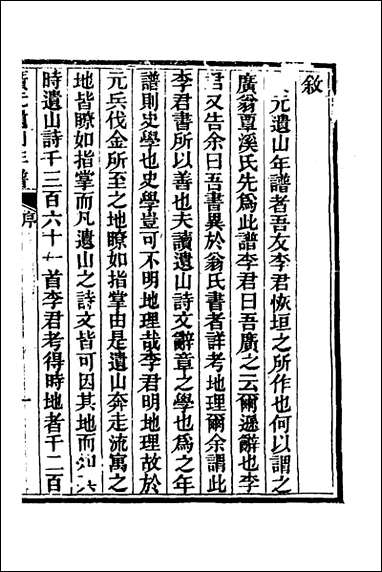 敘
元遺山年譜者吾友李君恢垣之所作也何以謂之
廣翁覃溪氏先爲此譜李君曰吾廣之云爾遜辭也李
君又告余曰吾書異於翁氏書者詳考地理爾余謂此
李君書所以善也夫讀遺山詩文辭章之學也爲之年
譜則史學也史學豈可不明地理哉李君明地理故於
元兵伐金所至之地瞭如指掌由是遺山奔走流寓之
地皆瞭如指掌而凡遺山之詩文皆可因其地而知其
時遺山詩千三百六十一首李君考得時地者千二百
序